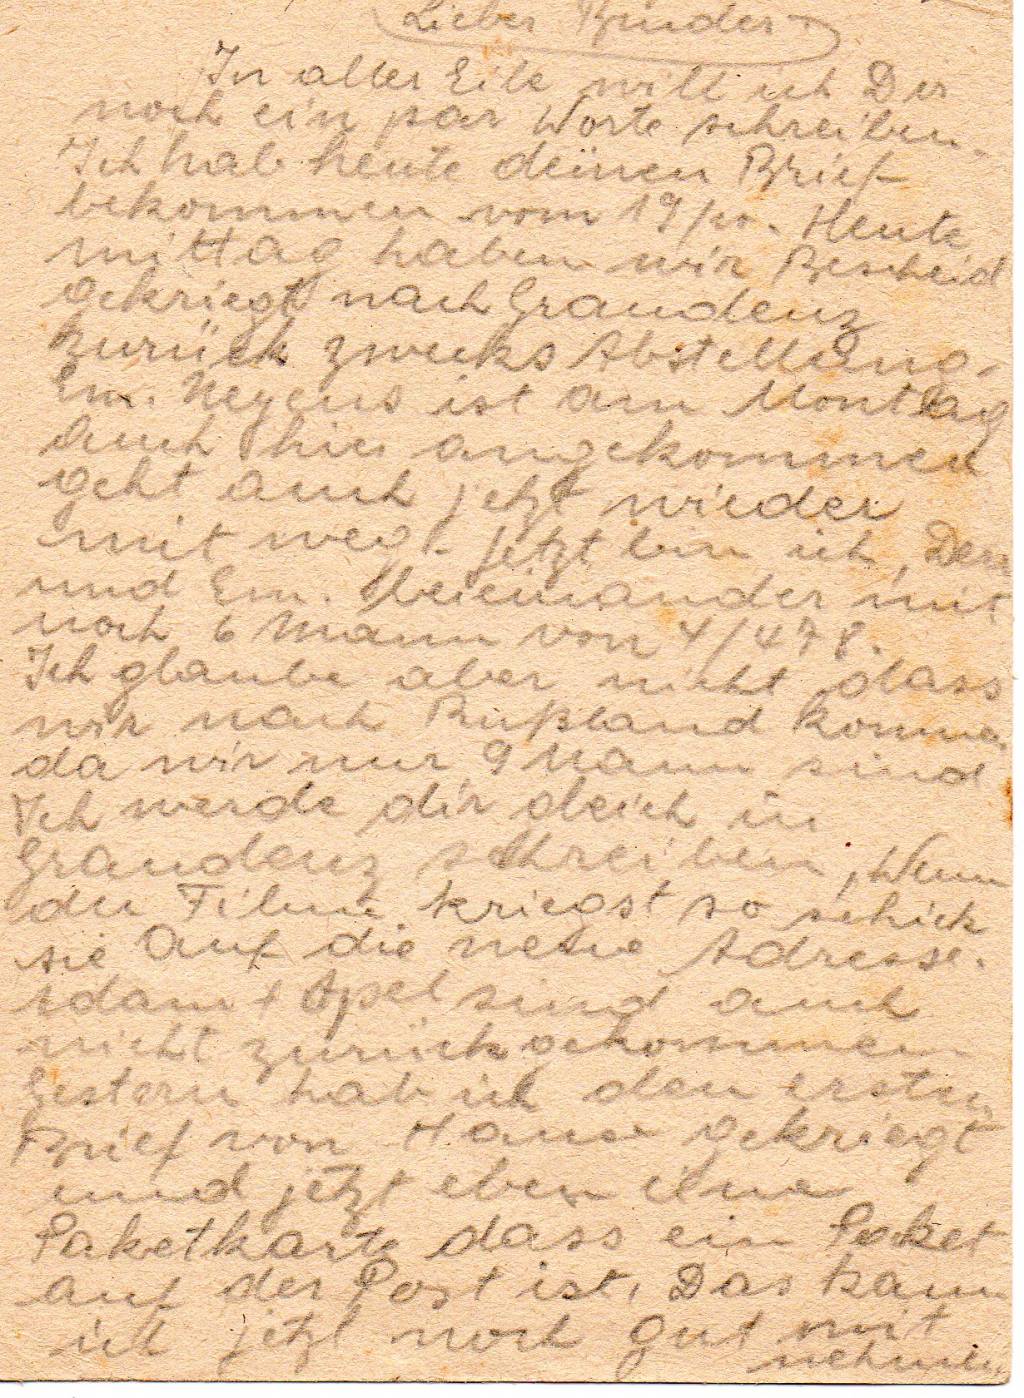 Lieber Bruder
In aller Eile will ich Dir
noch ein par Worte schreiben.
Ich hab heute deinen Brief
bekommen vom 19/10. Heute
mittag haben wir Bescheid
gekriegt nach Graudenz
zurück zwecks Abstellung.
Em. Heyens ist am Montag
auch hier angekommen
geht auch jetzt wieder
mit weg. Jetzt bin ich,
und Em. beieinander mit
noch 6 Mann von 4/478.
Ich glaube aber nicht dass
wir nach Rußland komme
da wir nur 9 Mann sind
Ich werde dir gleich in
Graudenz schreiben, Wenn
du Filme kriegst so schick
sie Auf die neue Adresse.
Adam + Apel sind auch
nicht zurückgekommen
Gestern hab ich den ersten
Brief von Hause gekriegt
und jetzt eben eine
Paketkarte dass ein Paket
auf der Post ist. Das kann
ich jetzt noch gut mit
nehmen